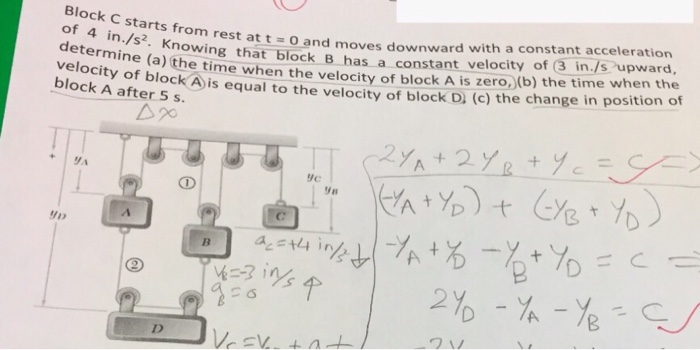 Block C starts from rest at t = 0 and moves downward with a constant acceleration
of 4 in./s². Knowing that block B has a constant velocity of 3 in./s upward,
determine (a) the time when the velocity of block A is zero, (b) the time when the
velocity of block A is equal to the velocity of block D, (c) the change in position of
block A after 5 s.
Δx
+
yA
yC
yB
yD
①
②
A
B
C
D
aC=+4 in/s² ↓
VB=-3 in/s ↑
aB=0
2yA + 2yB + yC = C =>
(-yA + yD) + (-yB + yD)
-yA + yD - yB + yD = C =
2yD - yA - yB = C